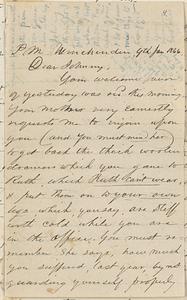 P.M. Winchendon 9th Jan 1864
Dear Johnny,
Your welcome favor
of yesterday was rec this morning
Your Mother very earnestly
requests me to enjoin upon
you (and you must mind her)
to get back the thick woolen
drawers which you gave to
Ruth, which Ruth can't wear,
& put them on to your own
legs which you say are stiff
with cold while you are
in the Office. You must re-
member She says, how much
you suffered, last year, by not
guarding yourself properly